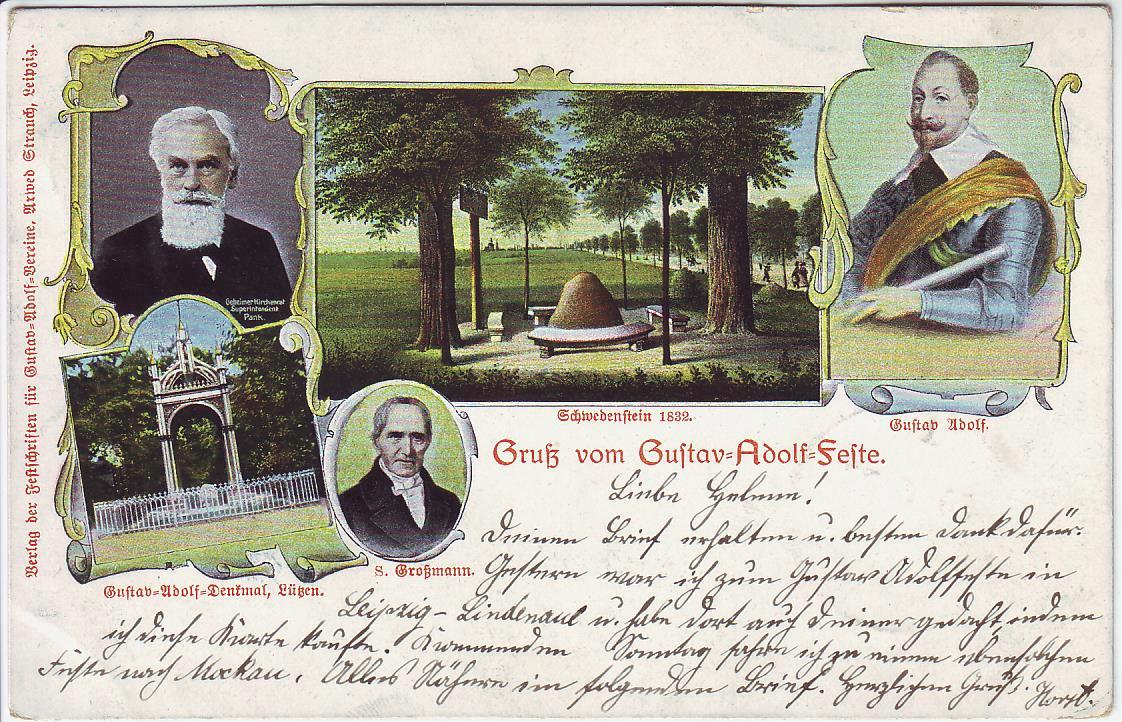 Verlag der Festschriften für Gustav-Adolf-Vereine, Arwed Strauch, Leipzig.
Geheimer Kirchenrat
Superintendent
Pank.
Schwedenstein 1832.
Gustav Adolf.
Gruß vom Gustav-Adolf-Feste.
S. Großmann.
Gustav-Adolf-Denkmal, Lützen.
Liebe Helene!
Deinen Brief erhalten u. besten Dank dafür.
Gestern war ich zum Gustav Adolffeste in
Leipzig-Lindenau u. habe dort auch deiner gedacht indem
ich diese Karte kaufte. Kommenden Sonntag fahre ich zu einem ebensolchen
Feste nach Mockau. Alles Nähere im folgenden Brief. Herzlichen Gruß. Horst.